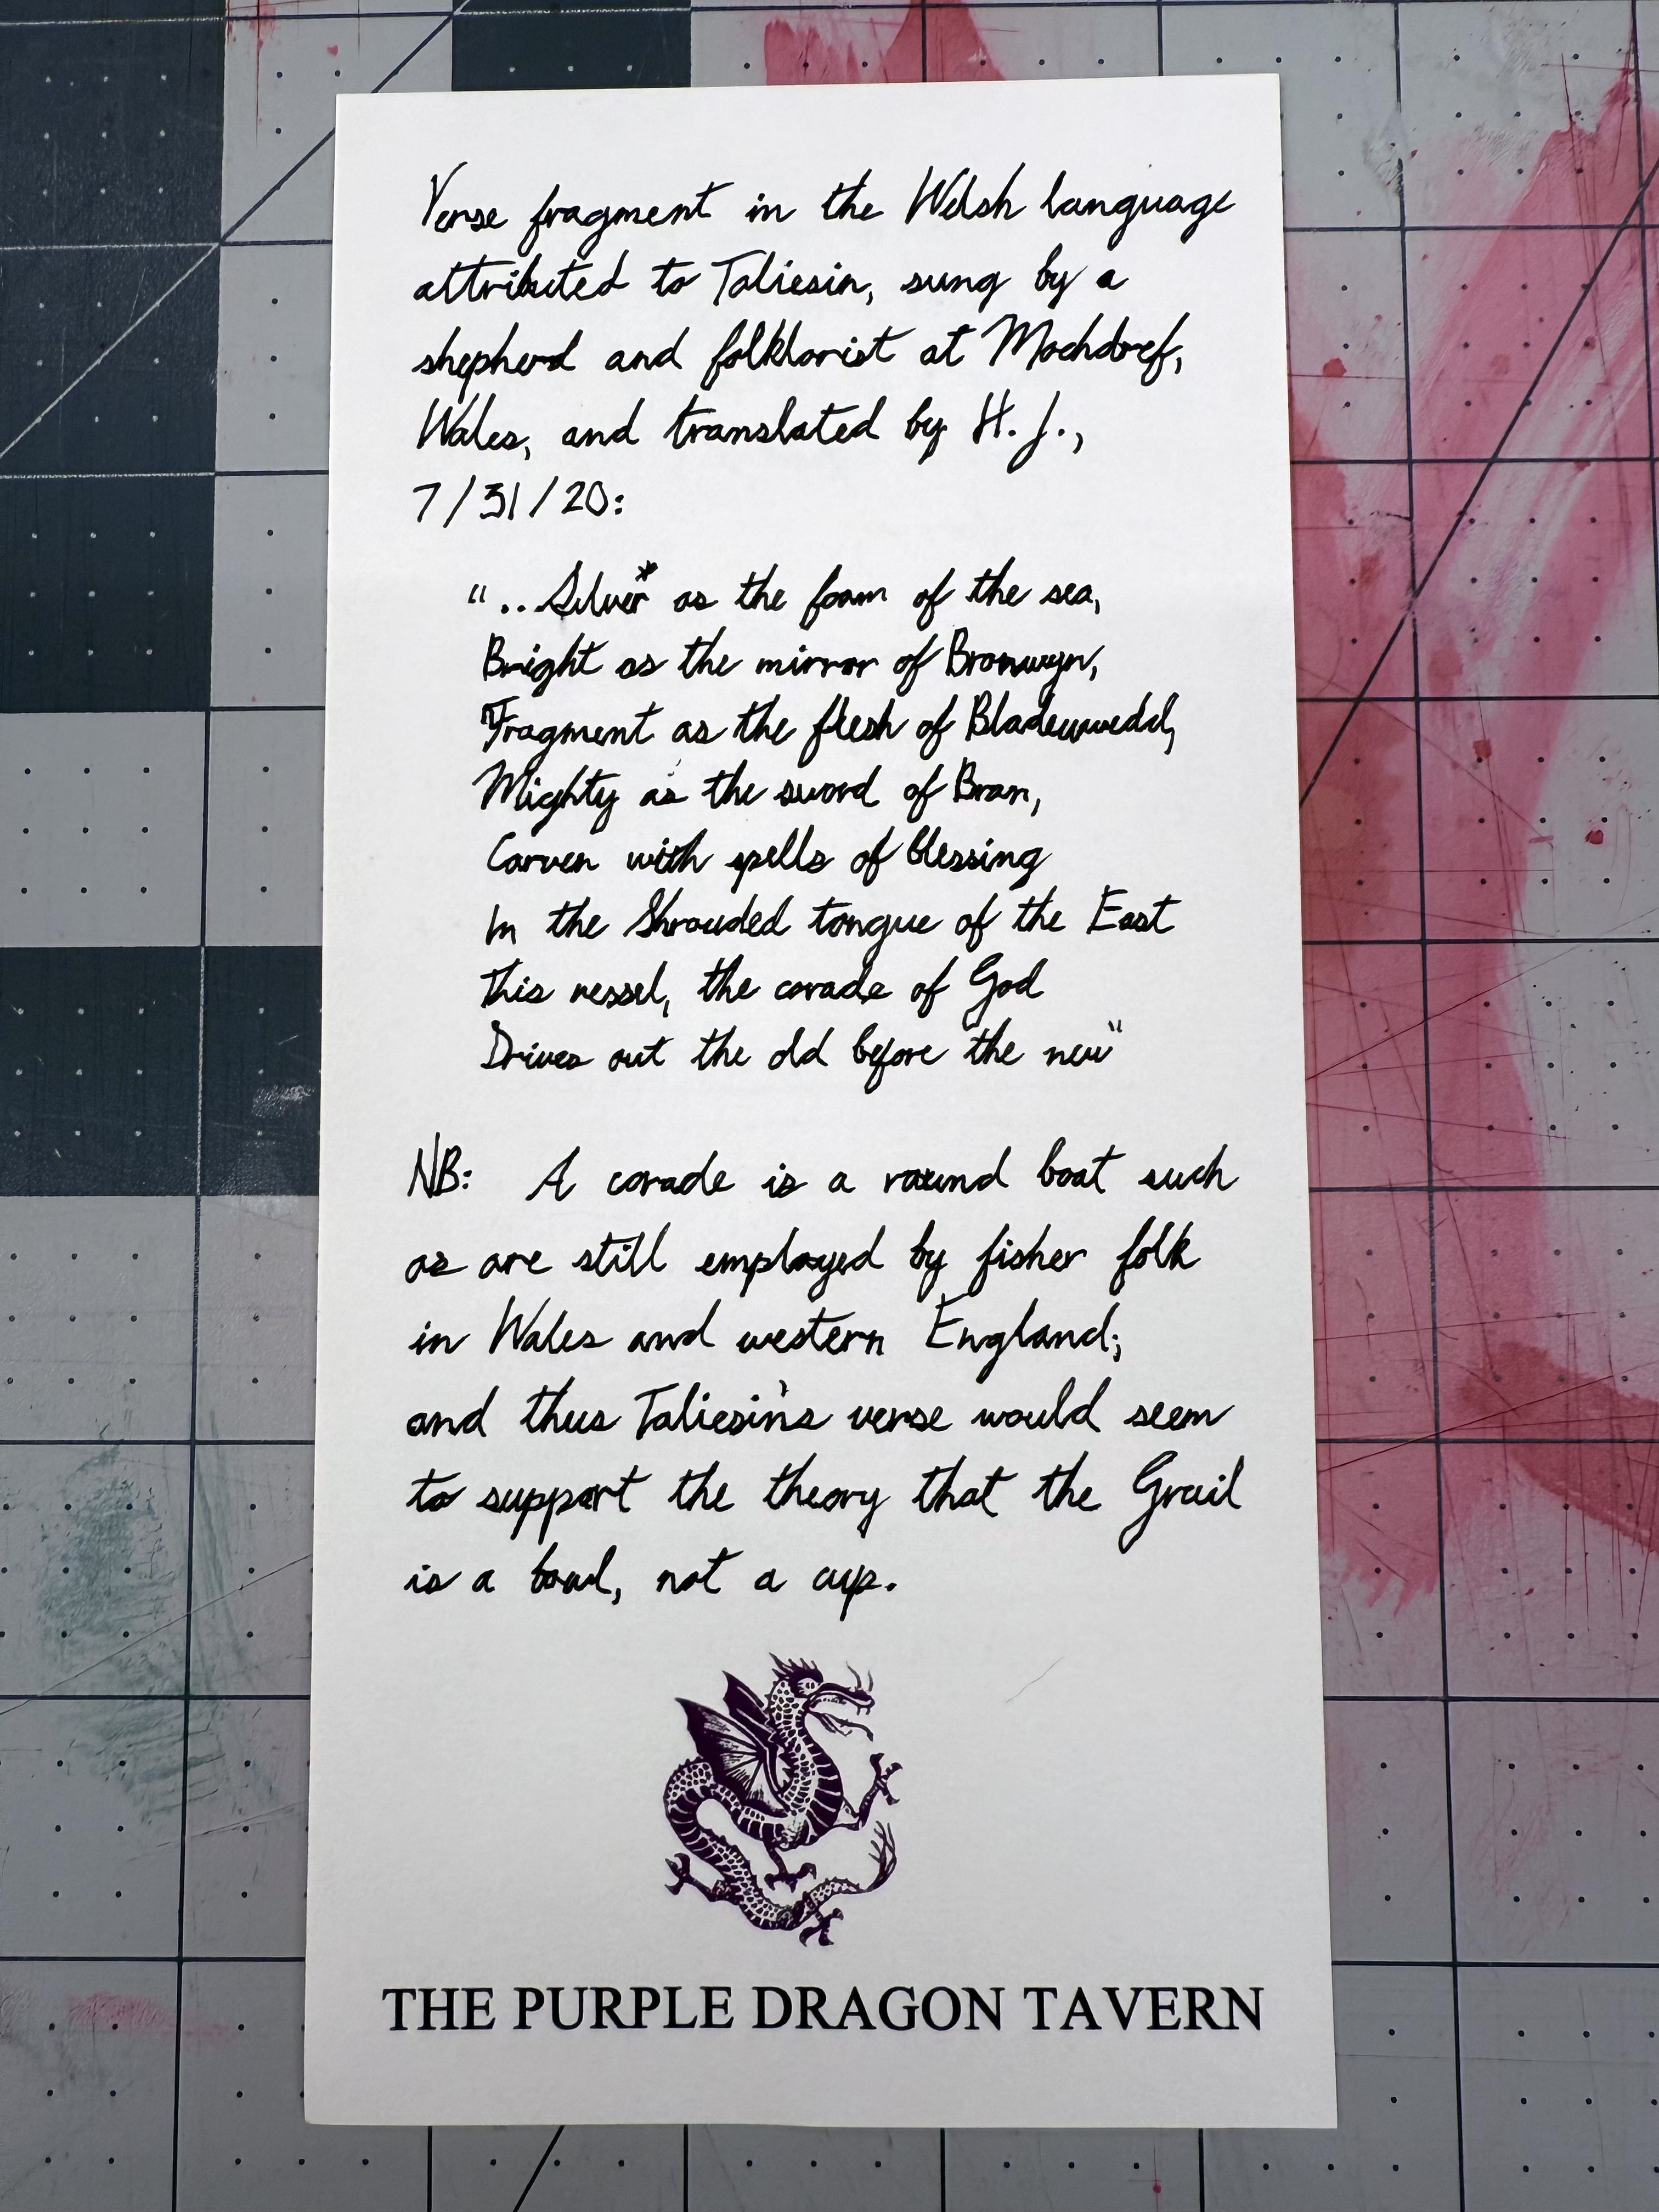 Verse fragment in the Welsh language
attributed to Taliesin, sung by a
shepherd and folklorist at Mochdref,
Wales, and translated by H. J.,
7/31/20:
"...Silver* as the foam of the sea,
Bright as the mirror of Bronwyn,
Fragment as the flesh of Bladeuwedd,
Mighty as the sword of Bran,
Carven with spells of blessing
In the Shrouded tongue of the East
This vessel, the corade of God
Drives out the old before the new"
NB: A corade is a round boat such
as are still employed by fisher folk
in Wales and western England;
and thus Taliesin's verse would seem
to support the theory that the Grail
is a bowl, not a cup.
THE PURPLE DRAGON TAVERN